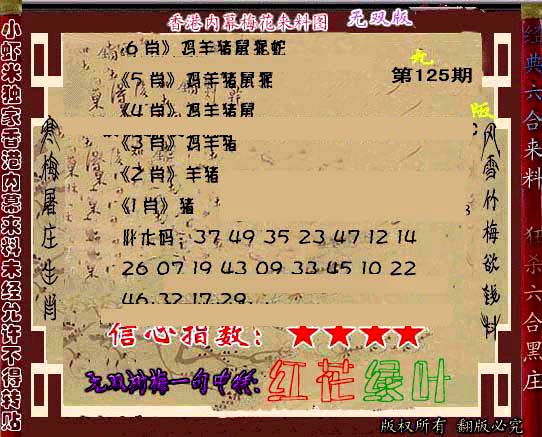 香港内幕梅花来料图 无双版
《6 肖》鸡羊猪鼠猴蛇
《5 肖》鸡羊猪鼠猴
第125期
《4 肖》鸡羊猪鼠
版
《3 肖》鸡羊猪
《2 肖》羊猪
《1 肖》猪
37 49 35 23 47 12 14
26 07 19 43 09 33 45 10 22
46 32 17 29
信心指数：★★★★
无双浏梅一句中特：红花绿叶
版权所有 翻版必究
小虾米独家香港内幕来料未经允许不得转贴
寒梅屠庄生肖
风雪竹梅欲钱料
经典六合来料
狂杀六合黑庄